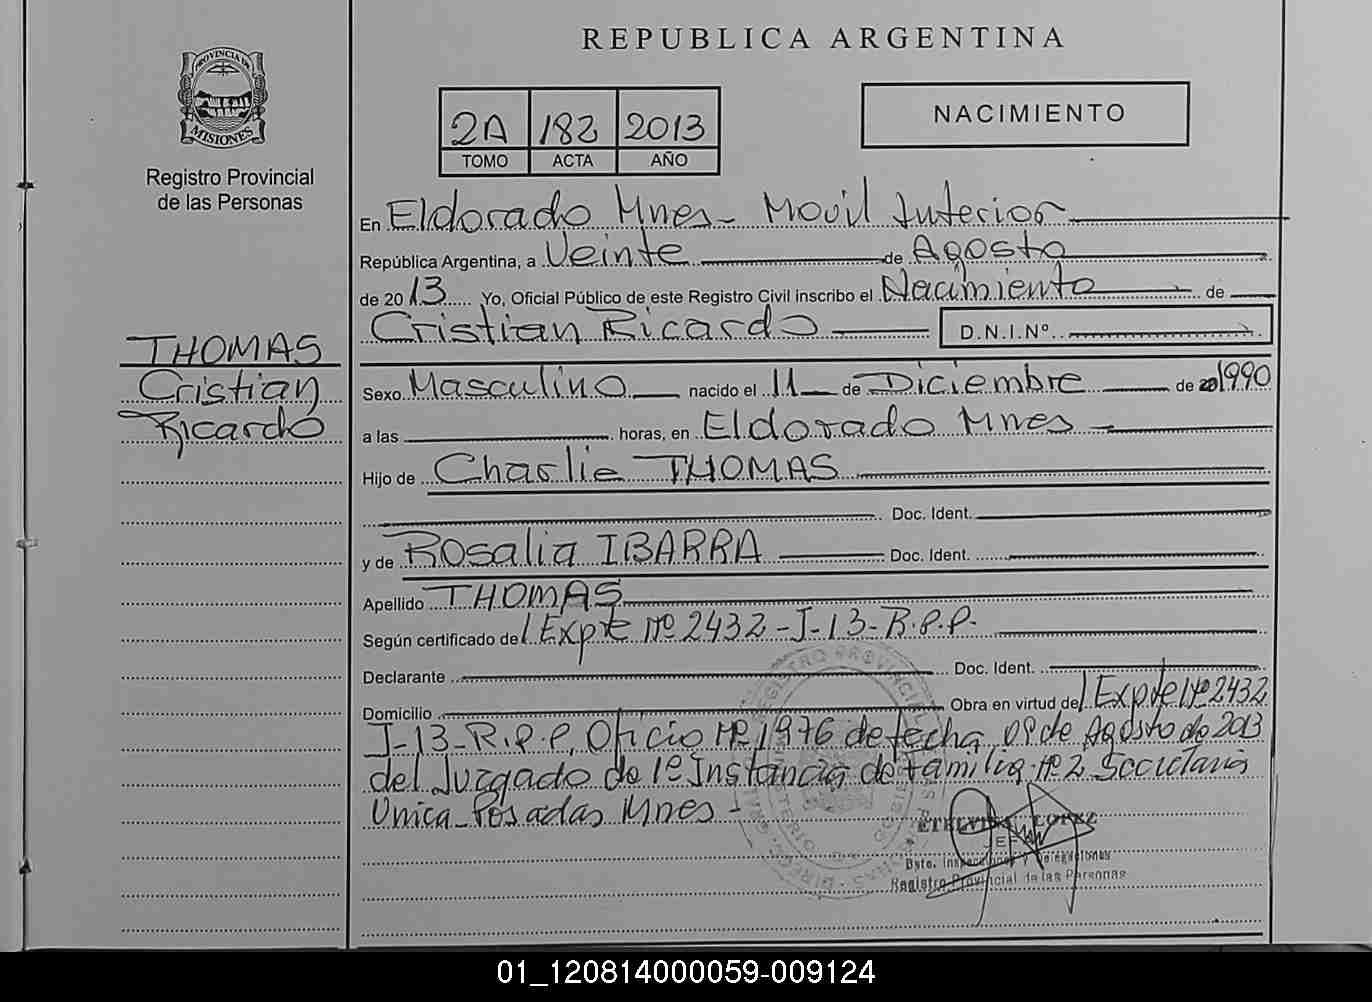 REPUBLICA ARGENTINA
PROVINCIA DE
MISIONES
Registro Provincial
de las Personas
NACIMIENTO
2A 182 2013
TOMO ACTA AÑO
En Eldorado Mnes- Movil Interior
República Argentina, a Veinte de Agosto
de 2013 Yo, Oficial Público de este Registro Civil inscribo el Nacimiento de
Cristian Ricardo D.N.I.Nº
THOMAS
Cristian
Ricardo
Sexo Masculino nacido el 11 de Diciembre de 20 1990
a las horas, en Eldorado Mnes
Hijo de Charlie THOMAS
Doc. Ident.
y de Rosalia IBARRA Doc. Ident.
Apellido THOMAS
Según certificado de Expte Nº 2432-J-13-R.P.P.
Declarante Doc. Ident.
Domicilio Obra en virtud de Expte Nº 2432
J-13-R.P.P. Oficio Nº 1976 de fecha 09 de Agosto de 2013
del Juzgado de 1º Instancia de Familia Nº 2 Secretaria
Unica Posadas Mnes-
ETELVINA LOPEZ
JEFA
Dpto. Inspecciones y Delegaciones
Registro Provincial de las Personas
01_120814000059-009124